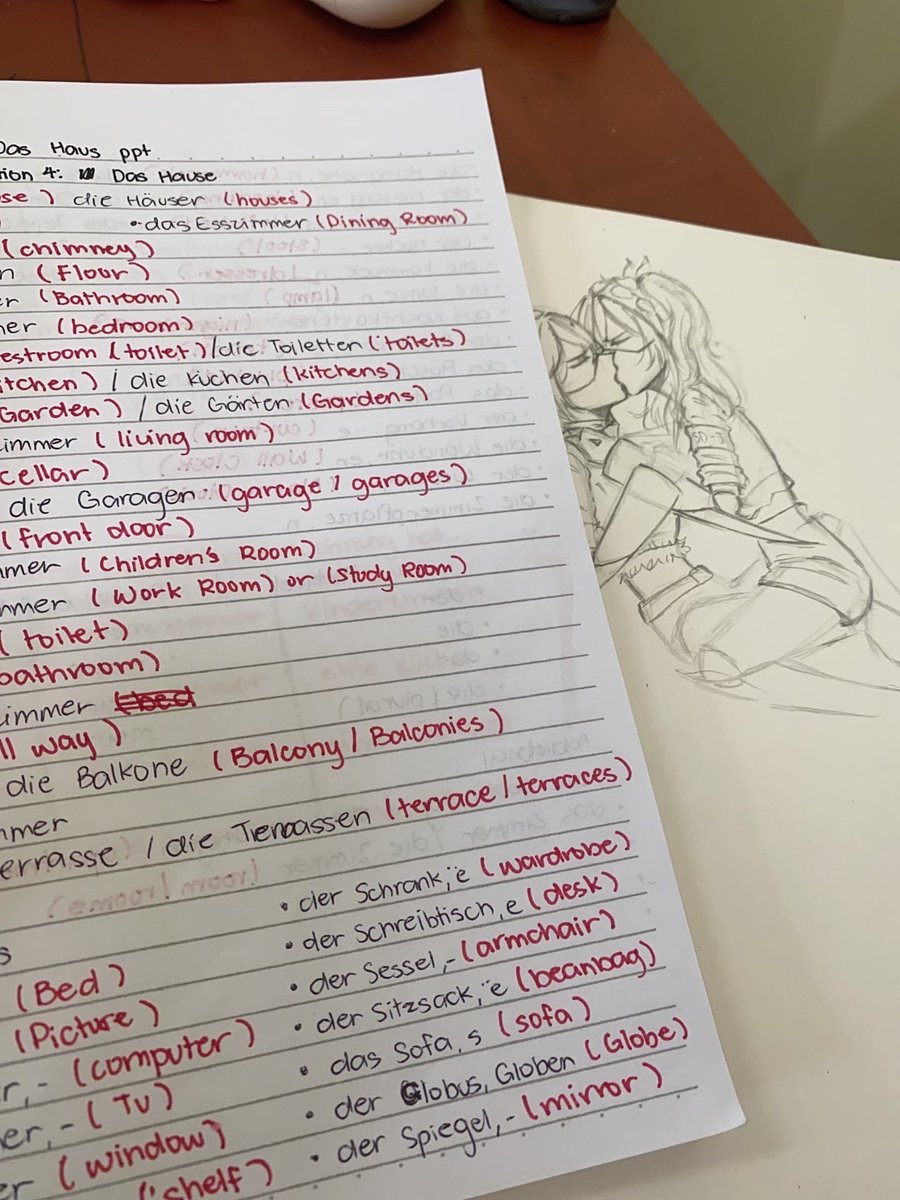 Das Haus ppt
tion 4: Das Hause
se) die Häuser (houses)
• das Esszimmer (Dining Room)
(chimney)
n (Floor)
er (Bathroom)
mer (bedroom)
estroom (toilet) / die Toiletten (toilets)
itchen) / die Kuchen (kitchens)
Garden) / die Gärten (Gardens)
zimmer (living room)
cellar)
die Garagen (garage / garages)
(front door)
mmer (Children's Room)
mmer (Work Room) or (Study Room)
(toilet)
bathroom)
zimmer
ll way)
die Balkone (Balcony / Balconies)
mmer
errasse / die Terrassen (terrace / terraces)
• der Schrank, ¨e (wardrobe)
• der Schreibtisch, e (desk)
s
(Bed) • der Sessel, - (armchair)
(Picture) • der Sitzsack, ¨e (beanbag)
r, - (computer) • das Sofa, s (sofa)
er, - (TV) • der Globus, Globen (Globe)
er (window) • der Spiegel, - (mirror)
(shelf)